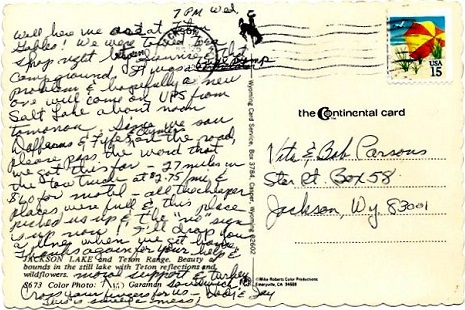 7 PM Wed.
Well here we are at The
Gables! We were towed to a
shop right by Jeannie's first
Campground,
problem & hopefully a new
one will come by UPS from
Salt Lake about noon
tomorrow. Since we saw
on the road,
please pass the word that
we got this far - 27 miles on
the tow truck at $2.75/mi &
$60 for motel - all the cheaper
places were full & this place
picked us up & the "no" sign
is up now! I'll drop you
a line when we get home.
Thanks again for your help &
moral support & turkey
sandwich
Cross your fingers for us -
& Jay
USA
15
the Continental card
Vita & Bob Parsons
Star Rt. Box 58
Jackson, Wy 83001
Wyoming Card Service, Box 3784, Casper, Wyoming 82602
JACKSON LAKE and Teton Range. Beauty
bounds in the still lake with Teton reflections and
wildflowers.
8673 Color Photo: Garaman
©Mike Roberts Color Productions
Emeryville, CA 94608